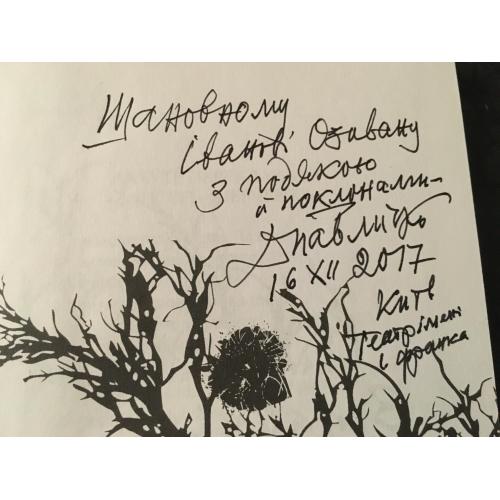 Шановному
Іванові
з подякою
й поклонами –
Дпавличко
16 XII 2017
Київ
Театр імені
І Франка